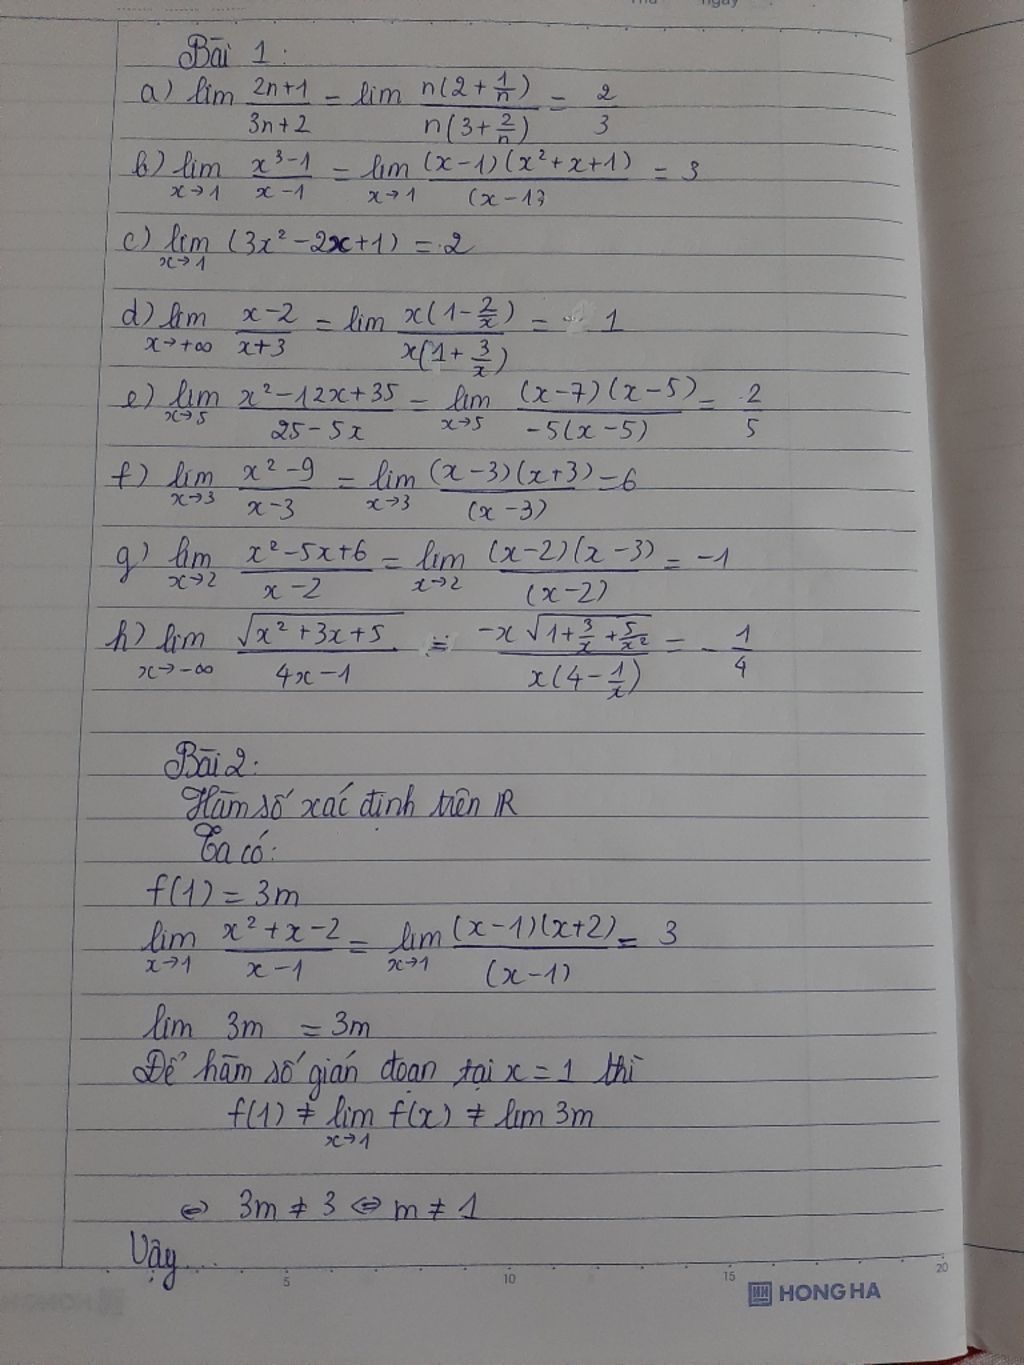 Thứ ngày
Bài 1:
a) lim (2n+1)/(3n+2) = lim n(2+1/n)/n(3+2/n) = 2/3
b) lim x→1 (x³-1)/(x-1) = lim x→1 (x-1)(x²+x+1)/(x-1) = 3
c) lim x→1 (3x²-2x+1) = 2
d) lim x→+∞ (x-2)/(x+3) = lim x(1-2/x)/x(1+3/x) = 1
e) lim x→5 (x²-12x+35)/(25-5x) = lim x→5 (x-7)(x-5)/-5(x-5) = 2/5
f) lim x→3 (x²-9)/(x-3) = lim x→3 (x-3)(x+3)/(x-3) = 6
g) lim x→2 (x²-5x+6)/(x-2) = lim x→2 (x-2)(x-3)/(x-2) = -1
h) lim x→-∞ √(x²+3x+5)/(4x-1) = -x√(1+3/x+5/x²)/x(4-1/x) = -1/4
Bài 2:
Hàm số xác định trên R
Ta có:
f(1) = 3m
lim x→1 (x²+x-2)/(x-1) = lim x→1 (x-1)(x+2)/(x-1) = 3
lim 3m = 3m
Để hàm số gián đoạn tại x = 1 thì
f(1) ≠ lim x→1 f(x) ≠ lim 3m
⇔ 3m ≠ 3 ⇔ m ≠ 1
Vậy...
5 10 15 20
HH HONG HA